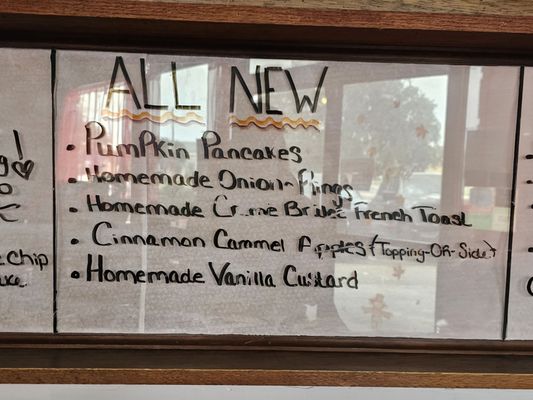 ALL NEW
• Pumpkin Pancakes
• Homemade Onion Rings
• Homemade Creme Brulee French Toast
• Cinnamon Carmel Apples (Topping-OR-Side)
• Homemade Vanilla Custard